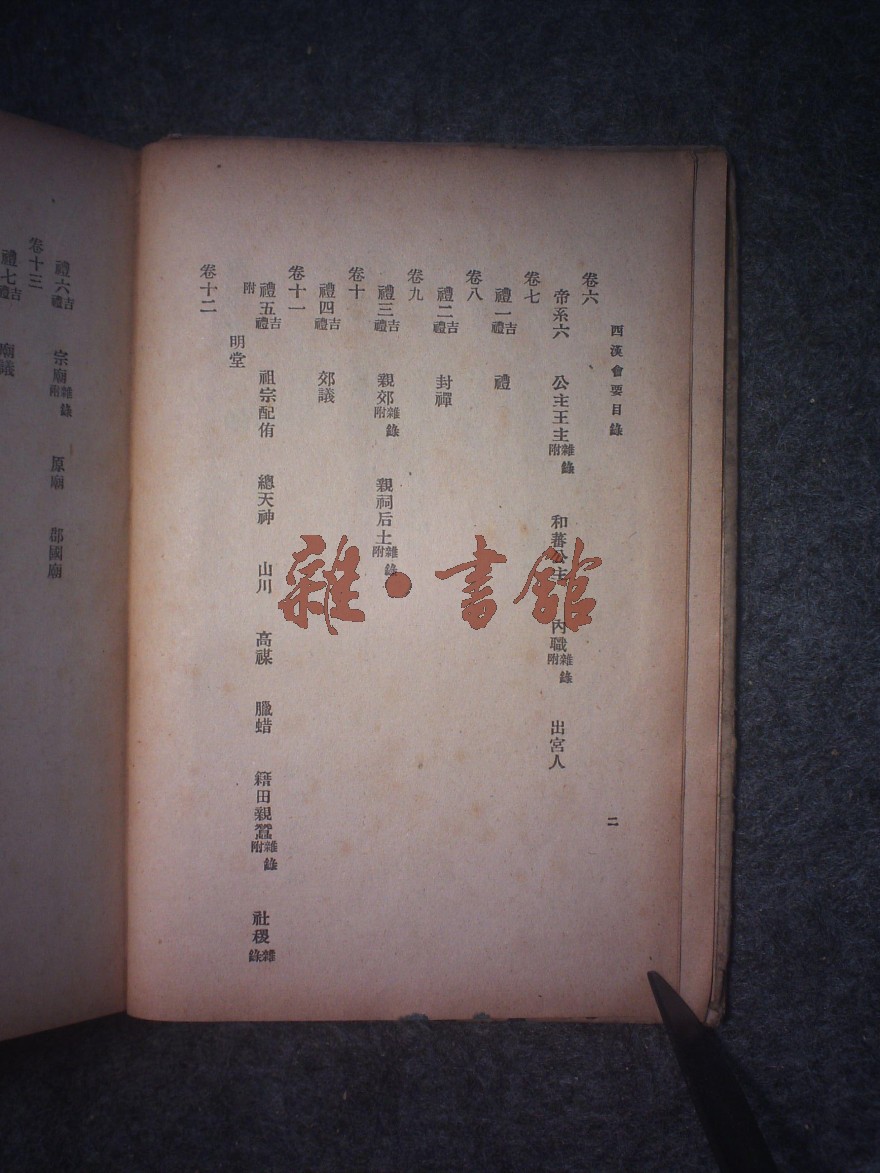 西漢會要目錄
二
卷六
帝系六 公主王主雜錄附 和蕃公主 內職雜錄附 出宮人
卷七
禮一吉禮 禮
卷八
禮二吉禮 封禪
卷九
禮三吉禮 親郊雜錄附 親祠后土雜錄附
卷十
禮四吉禮 郊議
卷十一
禮五吉禮 祖宗配侑 總天神 山川 高禖 臘蜡 籍田親蠶雜錄附 社稷雜錄
附 明堂
卷十二
禮六吉禮 宗廟雜錄附 原廟 郡國廟
卷十三
禮七吉禮 廟議
雜·書館